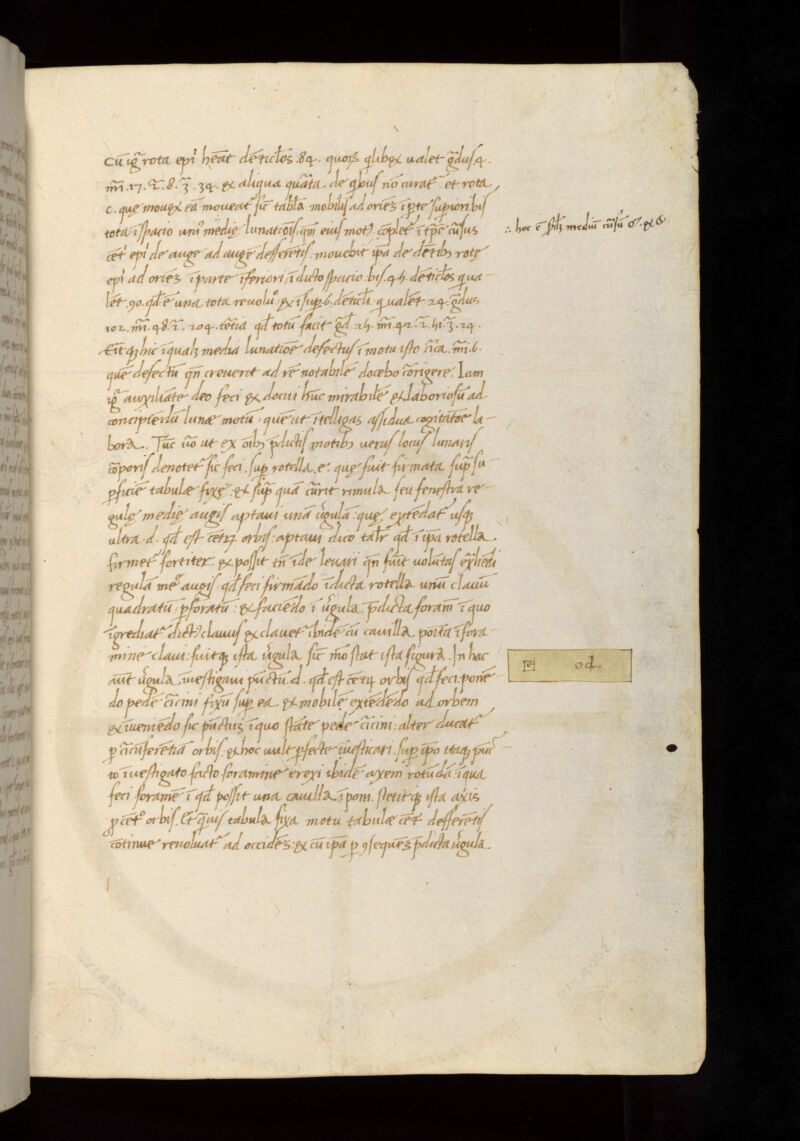 Cū igr̄ rota epi' hēat dēticłos .84. quorꝫ q̄libet ualet gr̄dus 4.
m̄i .17. 2̄. 8. 3̄. 34. et aliqua quāta. de qb̄us nō curatʳ. et rota
c. que mouet eā moueatʳ sic tabłā mobilis ad oriēs ī p̄te supioribis
tota ī spacio uniˀ medię lunatiōis qm̄ eius motˀ cōpletʳ ī tp̄e cursus
cēt' epi' de auge ad augē defferētis: mouebit ip̄a de dētibꝫ rotę
epi' ad oriēs ī parte īferiori ī dicto spacio bis .45. dēticłos qua
lēt .90. qd̄ ē una tota reuoluˀ et īsupꝫ 6. dēticłi. q̄ ualēt 24. gr̄dus
102. m̄i. 48. 2̄. 204. t̄tia qd̄ totū facit gr̄d 25. m̄i. 42. 2̄. 51. 3̄. 24.
Erit qꝫ hic ī qualꝫ media lunatiōe defectus ī motu isto cir̄ca m̄i. 6.
quē defectū qn̄ creuerit ad rē notabilē docebo cōrigere. Iam
igr̄ auxiliāte deo feci et docui hūc mirabilē et laboriosū ad
concipiendū lunæ motū. quē ut ītelligas assidua cogitatiōe la-
bora. Tūc uō ut ex oībꝫ p̄dictis motibꝫ uerus locus lunaris
cōrporis denotetʳ sic feci. sup rotella .e. quę fuit firmata sup̄ su
p̄ficiē tabulæ fixę. et sup̄ quā currit rimula seu fenestra re-
gulę medię augis aptaui unā uīgulā: quę extēdatʳ usqꝫ
ultra .d. qd̄ est cētrꝫ orbis: aptaui dico talr̄ qd̄ ī ip̄a rotella
firmetʳ fortiter et possit tn̄ īde leuari qn̄ fuit uolūtas ex̄hēdi
regulā meˀ augis. qd̄ feci firmādo ī dicta rotella unū clauū
quadratū p̄foratū: et faciēdo ī uīgula p̄dicta foramē ī quo
īgrediatʳ dictˀ clauus et clauetʳ ibidē cū cauilla posita ī fora
mine claui: fuitqꝫ ista uīgula sic mō stat ista figura. In hac
aūt uīgula īuestigaui pūctū .d. qd̄ est cētrꝫ orbis qd̄ feci: ponē
do pedē circini fixū sup ea et mobilē extēdēdo ad orbem
et īueniēdo sic pūctuꝫ ī quo stāte pede circini: alter ducatʳ
p̄ circūferētiā orbis. et hoc uult p̄fecte īuesticari. Sup ip̄o itaqꝫ pūc
to īuestigato facto foramine erexi ibidē axem rotūdā ī qua
feci foramē ī qd̄ possit una cauilla īponi. stetitqꝫ ista axis
p̄ cētˀ orbis. Et q̄uis tabula fixa motu tabulæ cēt' defferētis
cōtinue reuoluatʳ ad occidēs: et cū ip̄a p̄ 9sequēs p̄dicta uīgula
∴ hoc ē p̄dꝫ mediū cursū
od.